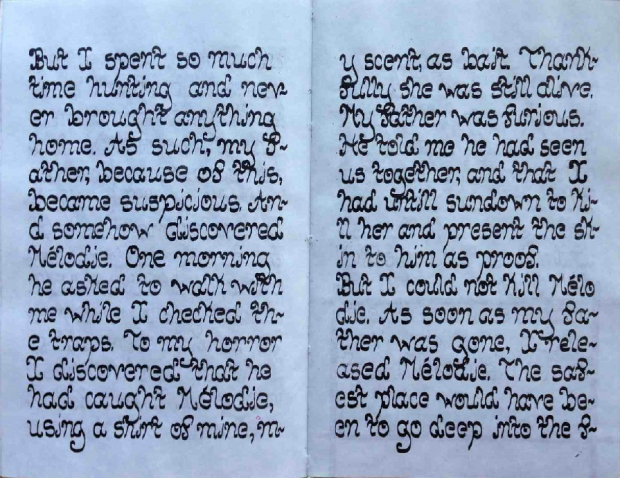 But I spent so much
time hunting and nev-
er brought anything
home. As such, my f-
ather, because of this,
became suspicious. An-
d somehow discovered
Mélodie. One morning
he asked to walk with
me while I checked th-
e traps. To my horror
I discovered that he
had caught Mélodie,
using a shirt of mine, m-
y scent, as bait. Thank-
fully she was still alive.
My father was furious.
He told me he had seen
us together, and that I
had until sundown to ki-
ll her and present the sk-
in to him as proof.
But I could not kill Mélo
die. As soon as my fa-
ther was gone, I rele-
ased Mélodie. The saf-
est place would have be-
en to go deep into the f-